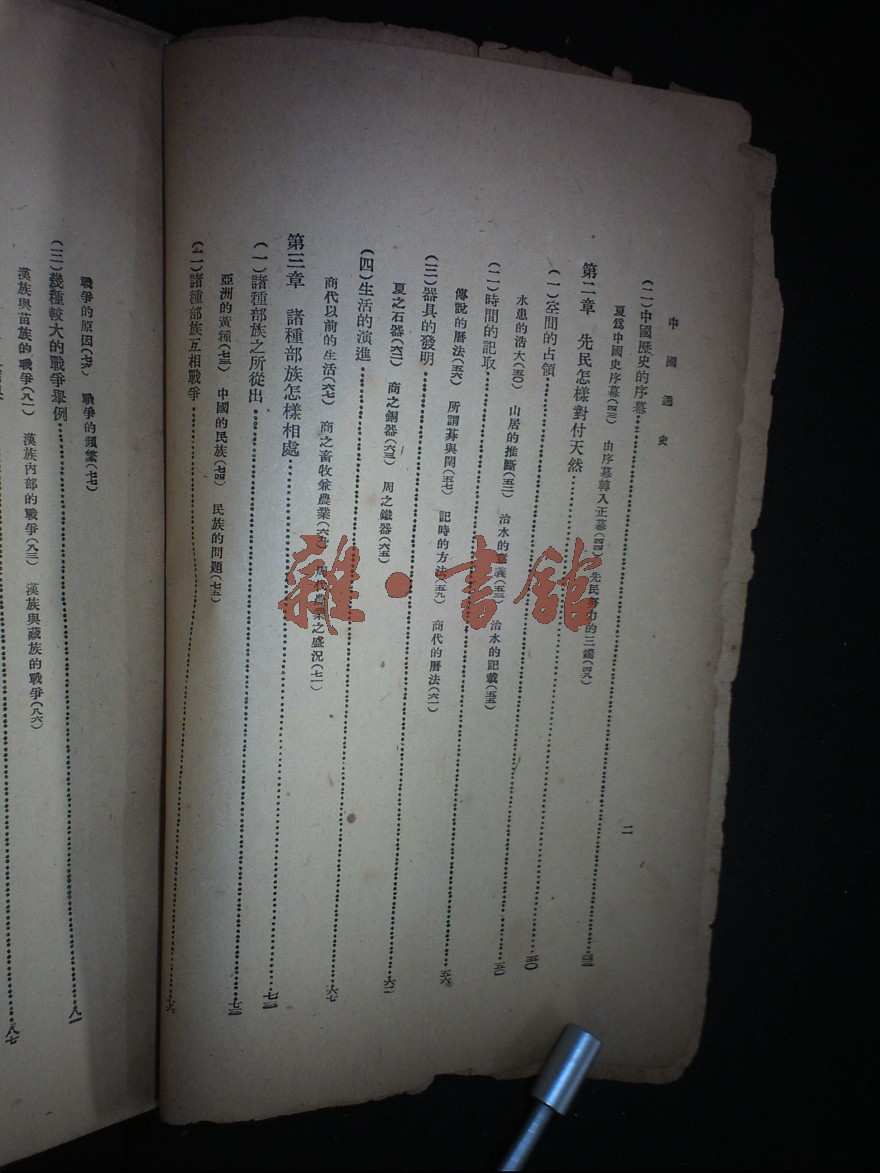 中國通史
二
(二)中國歷史的序幕
夏爲中國史序幕(四三) 由序幕轉入正幕(四四) 先民努力的三端(四八)
第二章 先民怎樣對付天然
五〇
(一)空間的占領
五〇
水患的浩大(五〇) 山居的推斷(五二) 治水的意義(五三) 治水的記載(五五)
(二)時間的記取
五六
傳說的曆法(五六) 所謂朞與閏(五七) 記時的方法(五九) 商代的曆法(六一)
(三)器具的發明
六二
夏之石器(六二) 商之銅器(六三) 周之鐵器(六五)
(四)生活的演進
六七
商代以前的生活(六七) 商之畜牧兼農業(六九) 周代農業之盛況(七一)
第三章 諸種部族怎樣相處
(一)諸種部族之所從出
亞洲的黃種(七三) 中國的民族(七四) 民族的問題(七五)
(二)諸種部族互相戰爭
七六
戰爭的原因(七六) 戰爭的頻繁(七七)
(三)幾種較大的戰爭舉例
八一
漢族與苗族的戰爭(八一) 漢族內部的戰爭(八三) 漢族與藏族的戰爭(八六)
八七
雜·書館